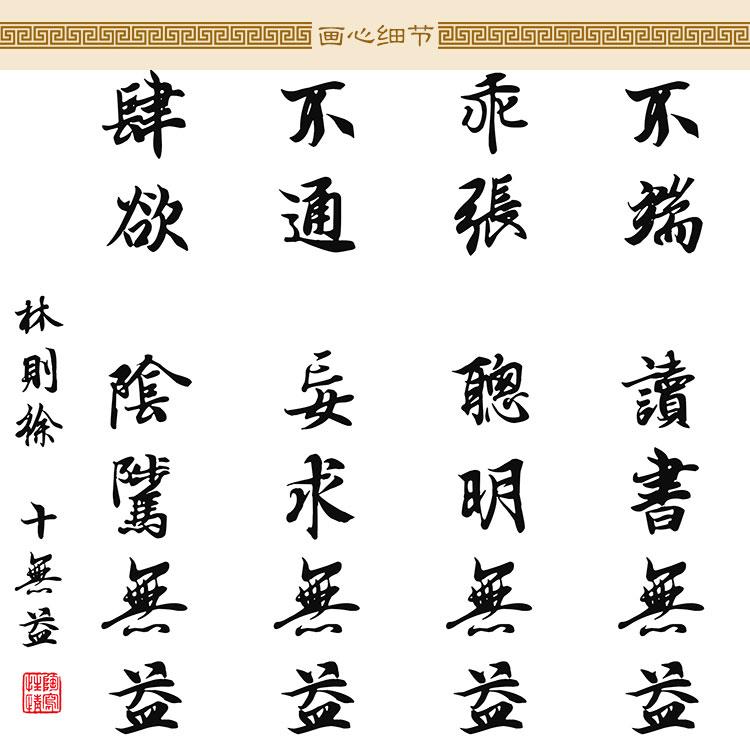 画心细节
不端 讀書無益
乖張 聰明無益
不通 妄求無益
肆欲 陰騭無益
林則徐 十無益